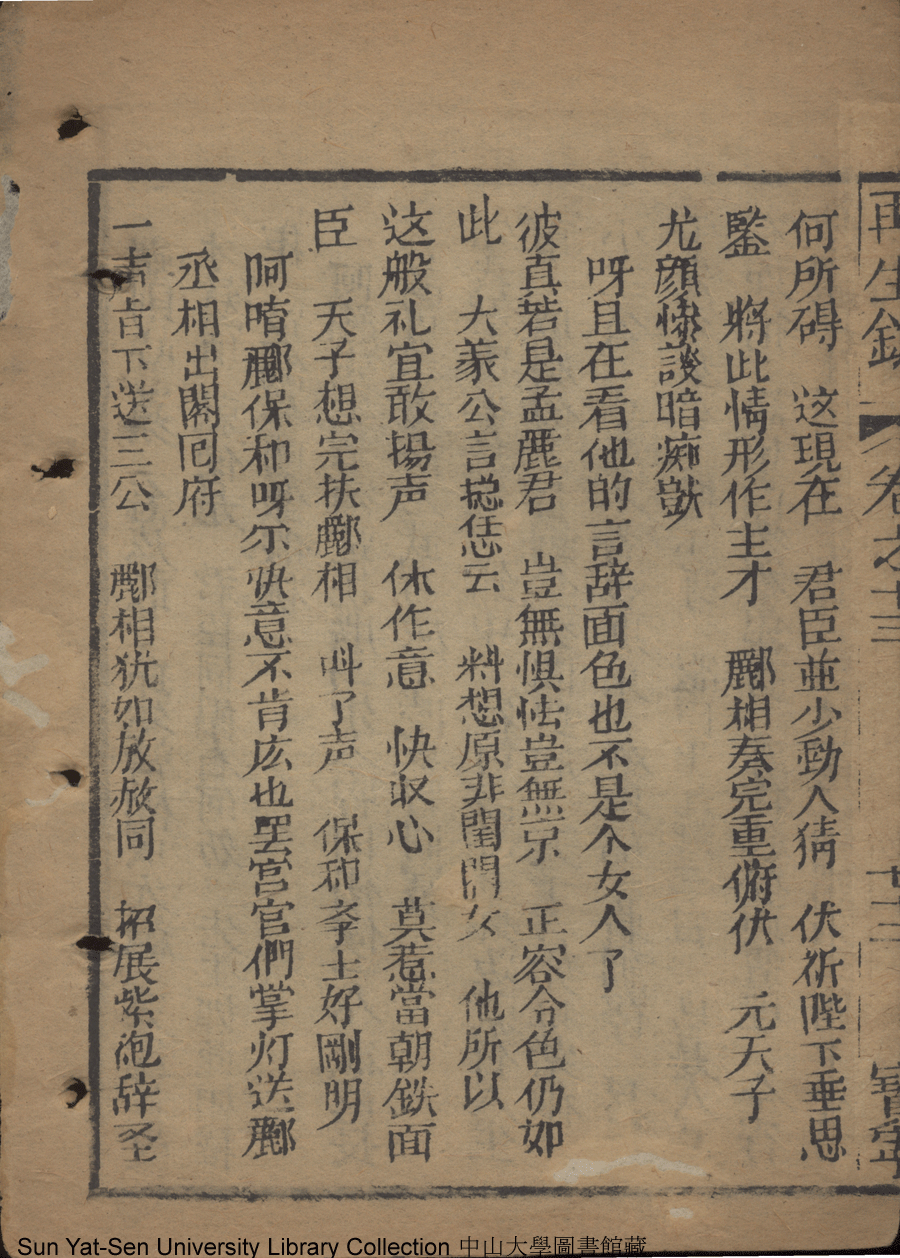 再生 卷之十三
何所碍 这現在 君臣並少勁人猜 伏祈陛下垂思
鍳 將此情形作主才 酈相奏完重俯伏 元天子
尤顔惨談暗痴獃
呀且在看他的言辞面色也不是个女人了
彼真若是孟麗君 豈無惧怯豈無京 正容令色仍如
此 大義公言搃恁云 料想原非閨閣女 他所以
这般礼宜敢揚声 休作意 快収心 莫惹當朝鉄面
臣 天子想完扶酈相 呌了声 保和孛士好剛明
阿唷酈保和呀尔快意不肯庅也罢宮官們掌灯送酈
丞相出閣囘府
一声旨下送三公 酈相犹如放赦同 拓展紫袍辞圣
Sun Yat-Sen University Library Collection 中山大學圖書館藏